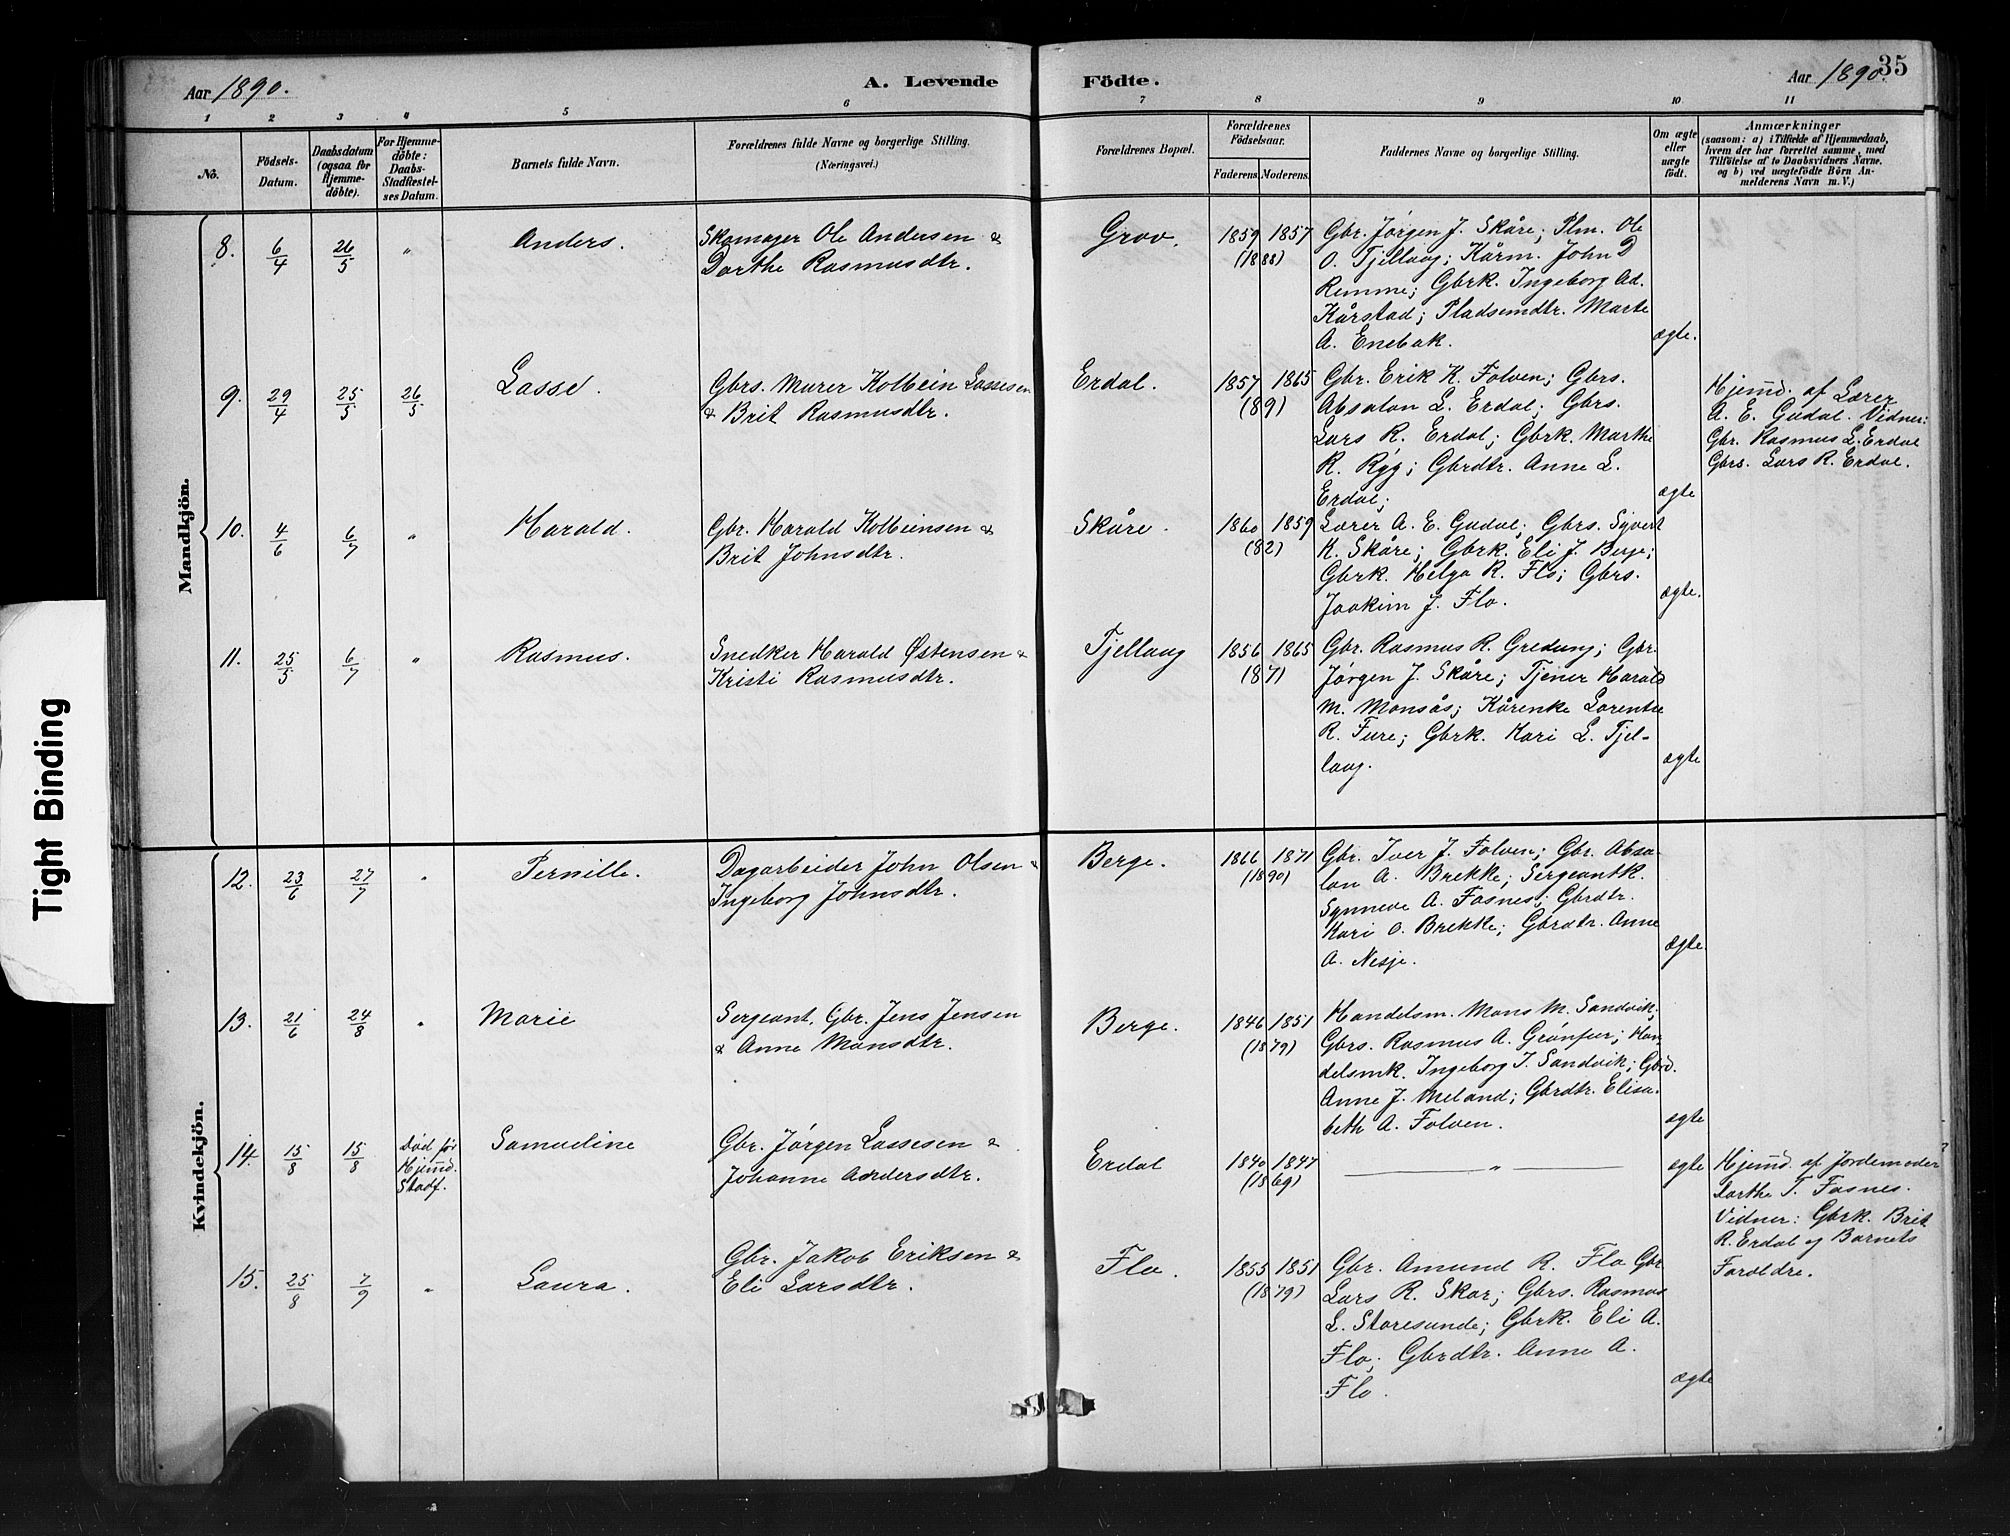 35
Aar 1890.
A. Levende Födte.
Aar 1890.
1 2 3 4 5 6 7 8 9 10 11
No.
Födsels-
Datum.
Daabsdatum
(ogsaa for
Hjemme-
döbte).
For Hjemme-
döbte:
Daabs-
Stadfæstel-
ses Datum.
Barnets fulde Navn.
Forældrenes fulde Navne og borgerlige Stilling.
(Næringsvei.)
Forældrenes Bopæl.
Forældrenes
Födselsaar.
Faderens. Moderens.
Faddernes Navne og borgerlige Stilling.
Om ægte
eller
uægte
födt.
Anmærkninger
(saasom: a) i Tilfælde af Hjemmedaab,
hvem der har forrettet samme, med
Tilföielse af to Daabsvidners Navne.
og b) ved uægtefödte Börn An-
melderens Navn m. V.)
Mandkjön.
8. 6/4 26/5 " Anders.
Skomager Ole Andersen &
Dorthe Rasmusdtr.
Grov. 1859 1857
(1888)
Gbr. Jørgen J. Skåre; Plm. Ole
O. Tjellaug; Kårm. John D
Remme; Gbrk. Ingeborg Ad.
Kårstad; Pladsemdtr. Marte
A. Enebak.
ægte.
9. 29/4 25/5 26/5 Lasse.
Gbrs. Murer Kolbein Lassesen
& Brit Rasmusdtr.
Erdal. 1857 1865
(89)
Gbr. Erik K. Folven; Gbrs.
Absalon L. Erdal; Gbrs.
Lars R. Erdal; Gbrk. Marthe
R. Ryg; Gbrdtr. Anne L.
Erdal;
ægte
Hjemd. af Lærer
A. E. Gudal. Vidner:
Gbr. Rasmus L. Erdal
Gbrs. Lars R. Erdal.
10. 4/6 6/7 " Harald.
Gbr. Harald Kolbeinsen &
Brit Johnsdtr.
Skåre. 1860 1859
(82)
Lærer A. E. Gudal; Gbrs. Syvert
K. Skåre; Gbrk. Eli J. Berge;
Gbrk. Helga R. Flo; Gbrs.
Joakim J. Flo.
ægte.
11. 25/5 6/7 " Rasmus.
Snedker Harald Østensen &
Kristi Rasmusdtr.
Tjellaug 1856 1865
(87)
Gbr. Rasmus R. Gredung; Gbr.
Jørgen J. Skåre; Tjener Harald
M. Monsås; Kårenke Lorentse
R. Fure; Gbrk. Kari L. Tjel-
laug.
ægte
Kvindekjön.
12. 23/6 27/7 " Pernille.
Dagarbeider John Olsen &
Ingeborg Johnsdtr.
Berge. 1866 1871
(1890)
Gbr. Iver J. Folven; Gbr. Absa-
lon A. Brekke; Sergeantk.
Synneve A. Fosnes; Gbrdtr.
Kari O. Brekke; Gbrdtr. Anne
A. Nesje.
ægte.
13. 21/6 24/8 " Marie
Sergeant, Gbr. Jens Jensen
& Anne Monsdtr.
Berge. 1846 1851
(1879)
Handelsm. Mons M. Sandvik;
Gbrs. Rasmus A. Grønfur; Han-
delsmk. Ingeborg J. Sandvik; Gbrd.
Anne J. Meland; Gbrdtr. Elisa-
beth A. Folven.
ægte
14. 15/8 15/8 Død før
Hjemd.
Stadf.
Samueline
Gbr. Jørgen Lassesen &
Johanne Andersdtr.
Erdal 1840 1847
(1869)
"
ægte
Hjemd. af Jordemoder
Dorthe T. Fosnes.
Vidner: Gbrk. Brit
R. Erdal og Barnets
Forældre.
15. 25/8 7/9 " Laura.
Gbr. Jakob Eriksen &
Eli Larsdtr.
Flo. 1855 1851
(1879)
Gbr. Amund R. Flo Gbr
Lars R. Skar; Gbrs. Rasmus
L. Storesunde; Gbrk. Eli A.
Flo; Gbrdtr. Anne A.
Flo.
ægte
Tight Binding